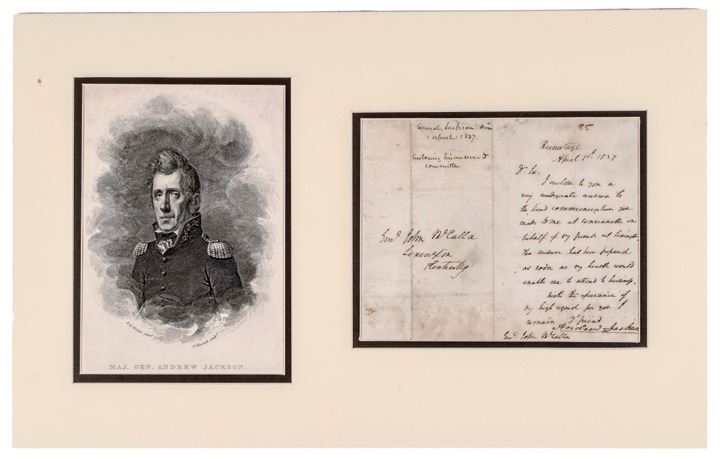 MAJ. GEN. ANDREW JACKSON.
General Jackson
1 April 1837
Enclosing his answer to
committee
Genl. John McCalla
Lexington
Kentucky
85
Hermitage
April 1st. 1837
Dr Sir,
I enclose to you a
very inadequate answer to
the kind communication you
made to me at Cincinnati on
behalf of my friends at Lexington.
The answer has been prepared
as soon as my health would
enable me to attend to business,
with the assurance of
my high regard for you I
remain yr friend
Andrew Jackson
Genl. John McCalla